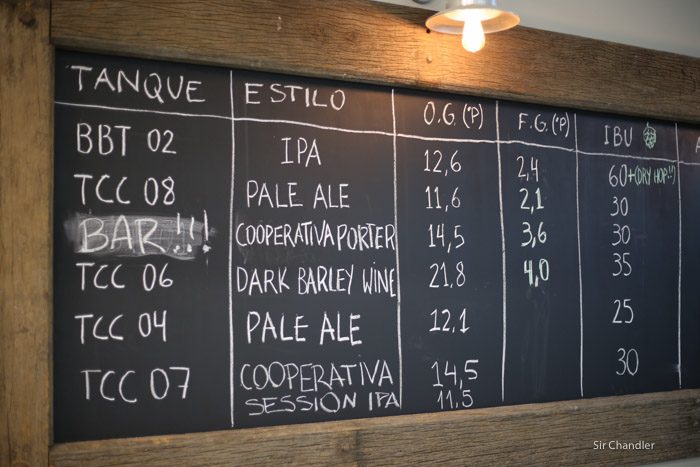 TANQUE ESTILO O.G (°P) F.G. (°P) IBU
BBT 02 IPA 12,6 2,4 60+(DRY HOP!!)
TCC 08 PALE ALE 11,6 2,1 30
BAR!!! COOPERATIVA PORTER 14,5 3,6 30
TCC 06 DARK BARLEY WINE 21,8 4,0 35
TCC 04 PALE ALE 12,1 25
TCC 07 COOPERATIVA 14,5 30
SESSION IPA 11,5
Sir Chandler